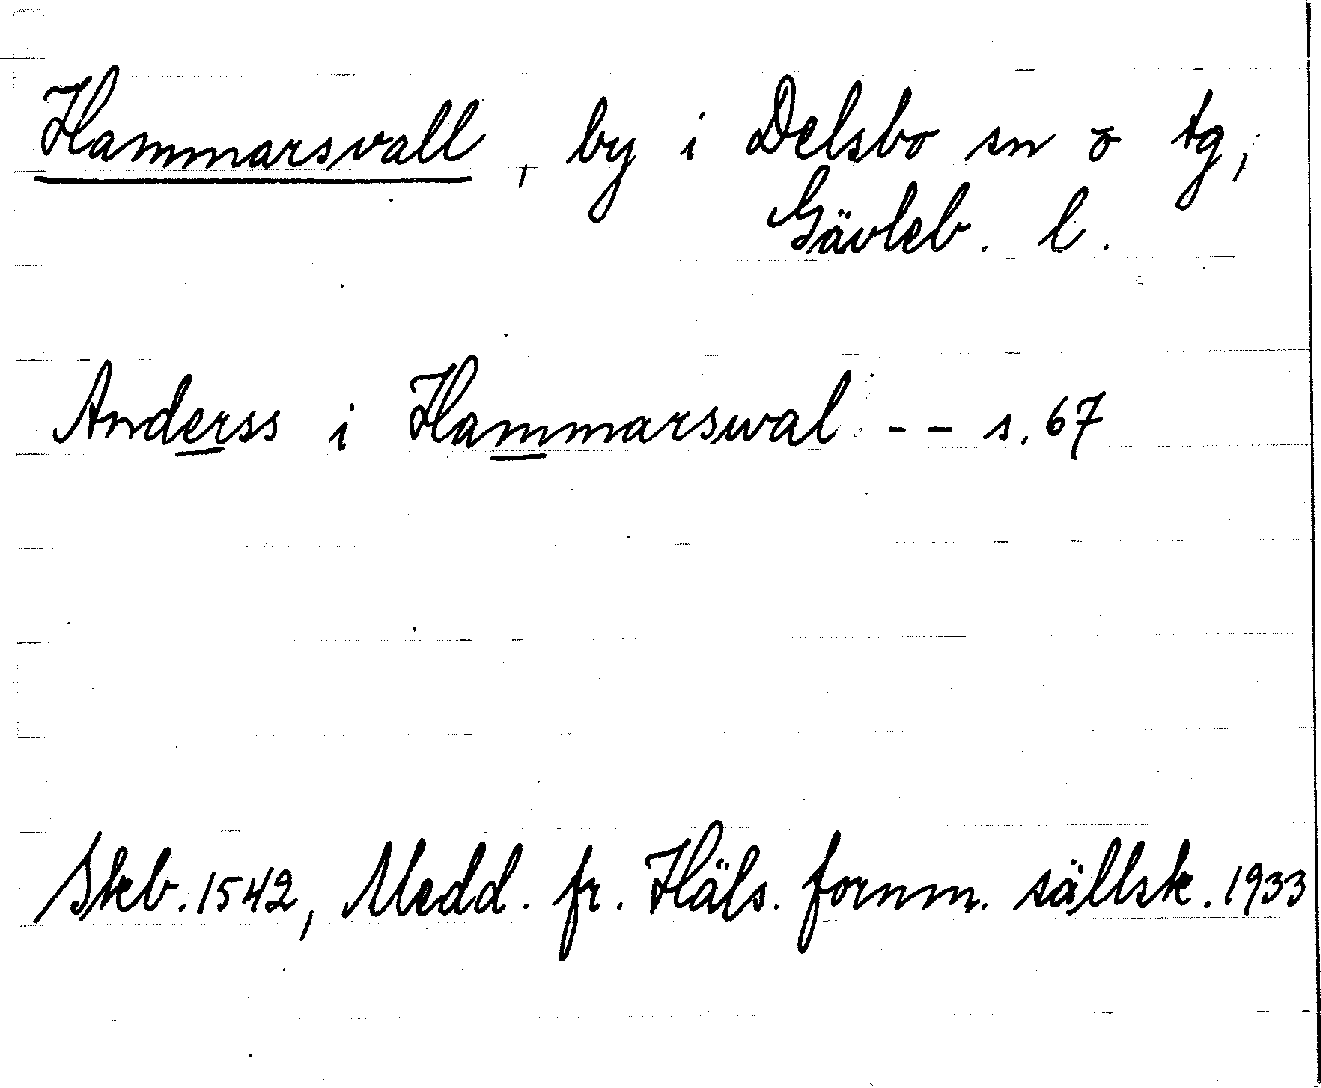 Hammarsvall, by i Delsbo sn o tg,
Gävleb. l.
Anderss i Hammarswal -- s. 67
Skb. 1542, Medd. fr. Häls. fornm. sällsk. 1933